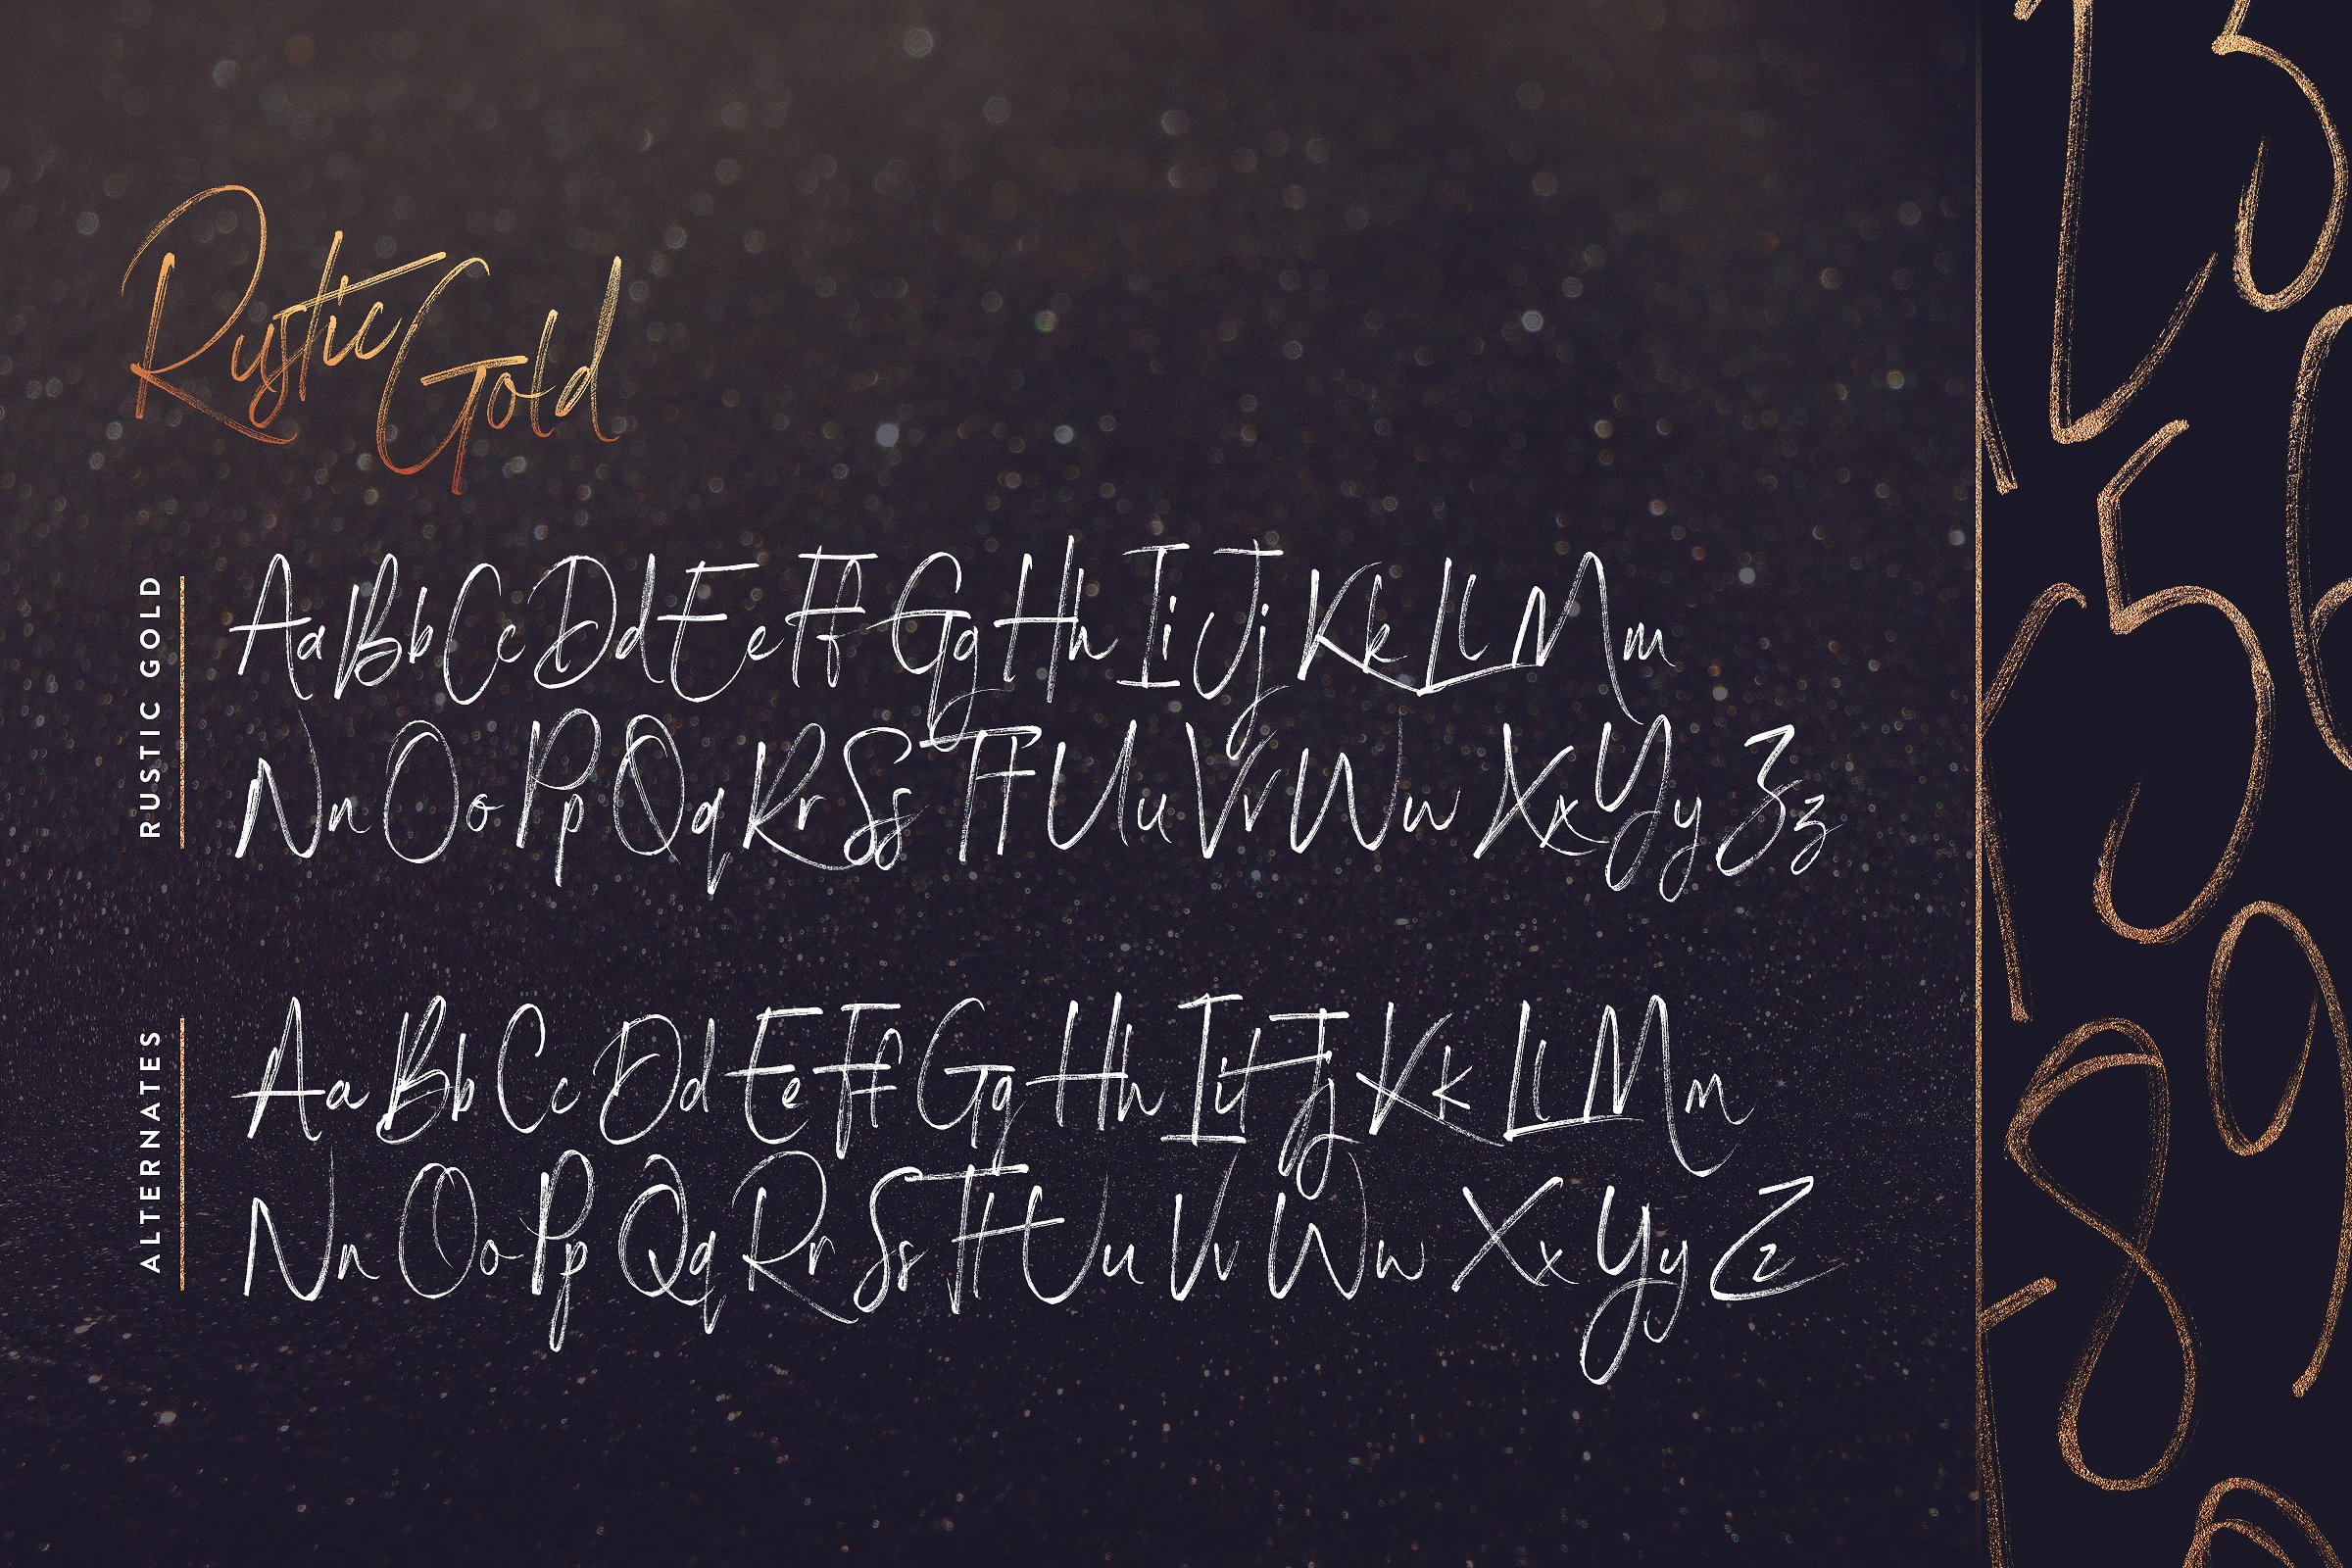 Rustic Gold
RUSTIC GOLD
Aa Bb Cc Dd Ee Ff Gg Hh Ii Jj Kk Ll Mm
Nn Oo Pp Qq Rr Ss Tt Uu Vv Ww Xx Yy Zz
ALTERNATES
Aa Bb Cc Dd Ee Ff Gg Hh Ii Jj Kk Ll Mm
Nn Oo Pp Qq Rr Ss Tt Uu Vv Ww Xx Yy Zz
5
9
8